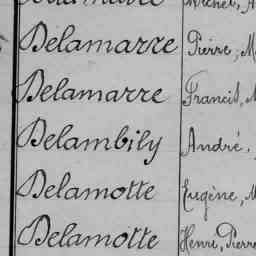 Delamarre Pierre, M
Delamarre Francis, M
Delambily André,
Delamotte Eugène, M
Delamotte Henri, Pierre